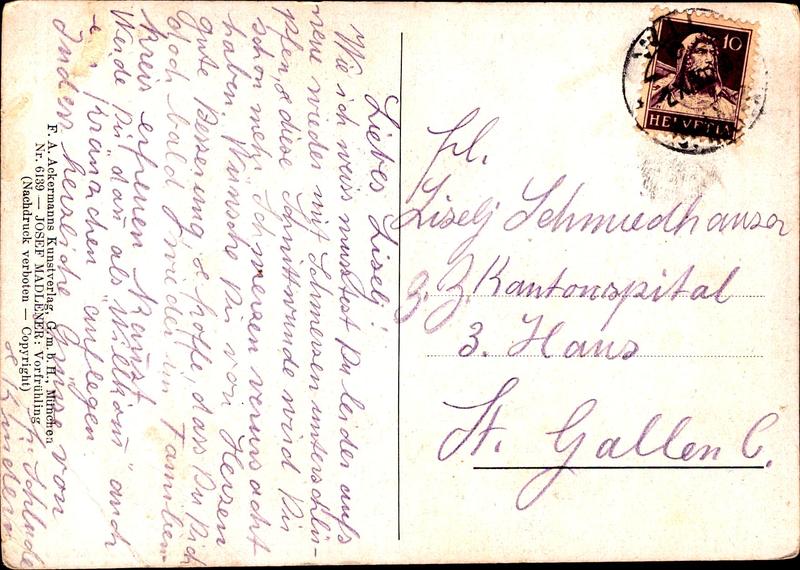 Liebes Liselj!
Wie ich weiss musstest Du leider aufs
neue wieder mit Schmerzen unterschlü-
pfen, & diese Schnittwunde wird Dir
schon mehr Schmerzen verursacht
haben. Wünsche Dir von Herzen
gute Besserung & hoffe, dass Du Dich
doch bald wieder im Familien-
kreis erfreuen kannst.
Werde Dir dann als "Willkom" auch
ein Kränzchen auflegen.
Indess herzliche Grüsse von
Fr. Schlude
& Kindern
F. A. Ackermanns Kunstverlag, G.m.b.H., München
Nr. 6139 — JOSEF MADLENER: Vorfrühling
(Nachdruck verboten — Copyright)
10
HELVETIA
Frl.
Liselj Schmiedhauser
z. Z. Kantonsspital
3. Haus
St. Gallen C.